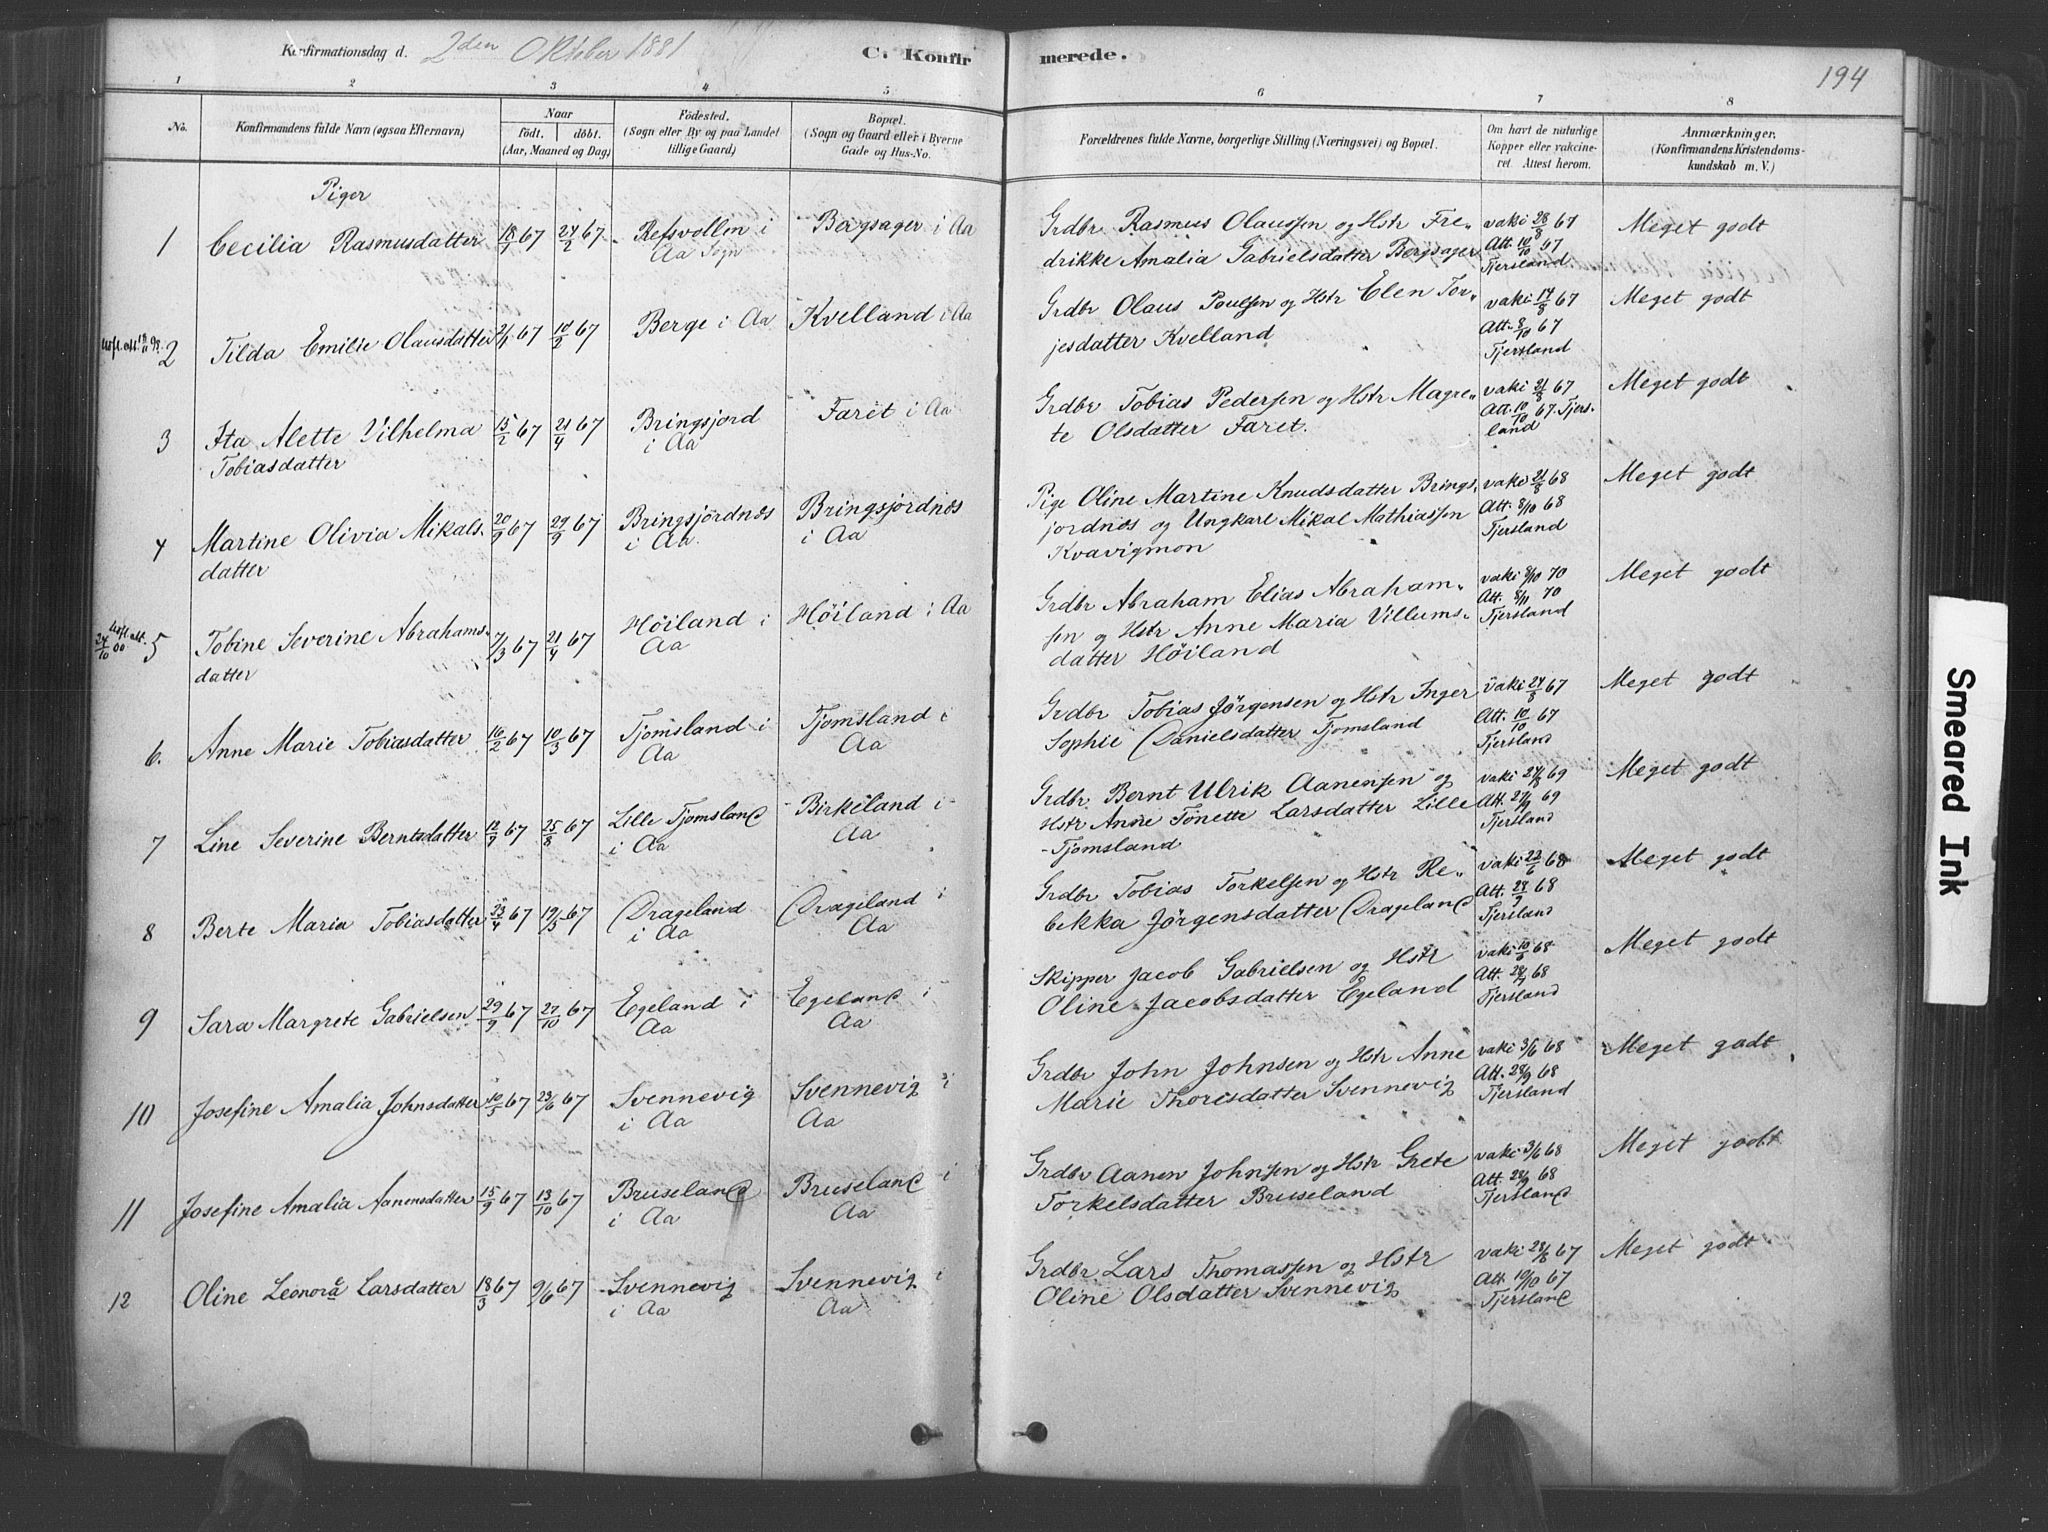 Konfirmationsdag d. 2den Oktober 1881
C. Konfirmerede.
194
1 2 3 4 5 6 7 8
No.
Konfirmandens fulde Navn (ogsaa Efternavn)
Naar
født. døbt.
(Aar, Maaned og Dag)
Fødested.
(Sogn eller By og paa Landet
tillige Gaard)
Bopæl.
(Sogn og Gaard eller i Byerne
Gade og Hus-No.
Forældrenes fulde Navne, borgerlige Stilling (Næringsvei) og Bopæl.
Om havt de naturlige
Kopper eller vakcine-
ret. Attest herom.
Anmærkninger.
(Konfirmandens Kristendoms-
kundskab m. V.)
Piger
1 Cecilia Rasmusdatter 18/1 67 24/2 67 Refsvollen i Bergsager i Aa Grdbr Rasmus Olaussen og Hstr Fre- vaki 28/8 67 Meget godt
Aa Sogn drikke Amalia Gabrielsdatter Bergsager Att. 10/10 67
Tjersland
2 Tilda Emilie Olausdatter 2/1 67 10/2 67 Berge i Aa Kvelland i Aa Grdbr Olaus Poulsen og Hstr Elen Tor- vaki 17/8 67 Meget godt
jesdatter Kvelland Att. 8/10 67
Tjersland
3 Ita Alette Vilhelma 15/2 67 21/4 67 Bringsjord Faret i Aa Grdbr Tobias Pedersen og Hstr Magre- vaki 21/8 67 Meget godt
Tobiasdatter i Aa te Olsdatter Faret. Att. 10/10 67. Tjers-
land
4 Martine Olivia Mikals- 20/9 67 29/9 67 Bringsjordnæs Bringsjordnæs Pige Oline Martine Knudsdatter Brings- vaki 21/8 68 Meget godt
datter i Aa i Aa jordnæs og Ungkarl Mikal Mathiassen Att. 8/10 68
Kvavigmon Tjersland
5 Tobine Severine Abrahams- 7/3 67 21/4 67 Høiland i Høiland i Aa Grdbr Abraham Elias Abraham- vaki 8/10 70 Meget godt
datter Aa sen og Hstr Anne Maria Villums- Att. 8/11 70
datter Høiland Tjersland
6. Anne Marie Tobiasdatter 16/2 67 10/3 67 Tjomsland i Tjomsland i Grdbr Tobias Jörgensen og Hstr Inger vaki 24/8 67 Meget godt
Aa Aa Sophie Danielsdatter Tjomsland Att. 10/10 67
Tjersland
7 Line Severine Berntsdatter 67 25/8 67 Lille Tjomsland Birkeland i Grdbr. Bernt Ulrik Aanensen og vaki 27/8 69 Meget godt
i Aa Aa Hstr Anne Tönette Larsdatter Lille Att. 27/9 69
Tjomsland Tjersland
8 Berte Maria Tobiasdatter 23/4 67 19/5 67 Drageland Drageland i Grdbr Tobias Torkelsen og Hstr Re- vaki 22/6 68 Meget godt
i Aa Aa bekka Jörgensdatter Drageland Att. 68
Tjersland
9 Sara Margrete Gabrielsen 29/9 67 27/10 67 Egeland i Egeland i Skipper Jacob Gabrielsen og Hstr vaki 68 Meget godt
Aa Aa Oline Jacobsdatter Egeland Att. 68
Tjersland
10 Josefine Amalia Johnsdatter 10/5 67 23/6 67 Svennevig Svennevig i Grdbr John Johnsen og Hstr Anne vaki 3/6 68 Meget godt
i Aa Aa Marie Thoresdatter Svennevig Att. 28/9 68
Tjersland
11 Josefine Amalia Aanensdatter 15/9 67 13/10 67 Bruseland Bruseland i Grdbr Aanen Johnsen og Hstr Grete vaki 3/6 68 Meget godt
i Aa Aa Torkelsdatter Bruseland Att. 28/9 68
Tjersland
12 Oline Leonora Larsdatter 18/3 67 9/6 67 Svennevig Svennevig i Grdbr. Lars Thomassen og Hstr vaki 28/8 67 Meget godt
i Aa Aa Oline Olsdatter Svennevig Att. 10/10 67
Tjersland
Smeared Ink